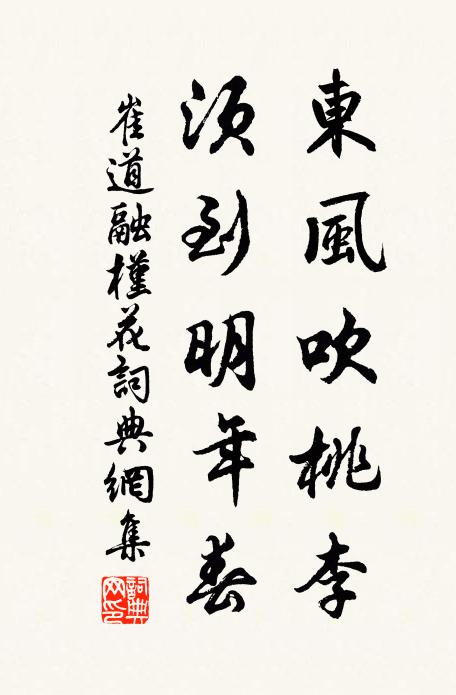 東風吹桃李
須到明年春
崔道融槿花詞典網集
詞典網印